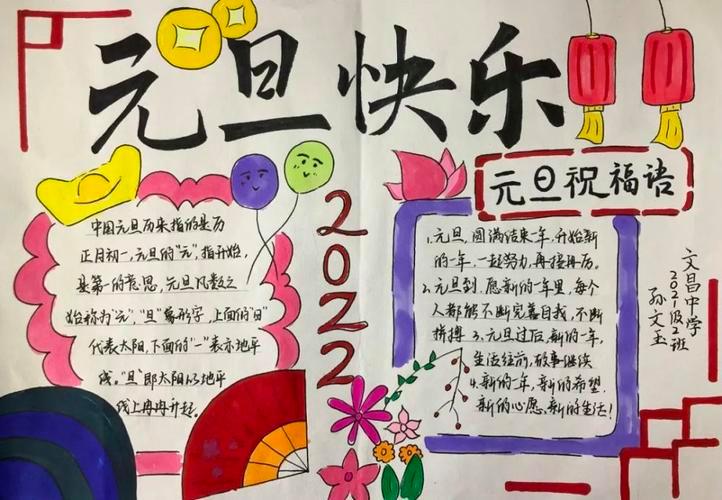 元旦快乐
中国元旦历来指的是历
正月初一,元旦的"元",指开始,
是第一的意思,元旦凡数之
始称为"元","旦"象形字,上面的"日"
代表太阳,下面的"一"表示地平
线。"旦"即太阳从地平
线上冉冉升起。
2022
元旦祝福语
1.元旦,圆满结束一年,开始新
的一年,一起努力,再接再厉。
2.元旦到,愿新的一年里,每个
人都能不断完善自我,不断
拼搏 3.元旦过后,新的一年,
生活往前,故事继续
4.新的一年,新的希望,
新的心愿,新的生活!
文昌中学
2021级2班
孙文玉